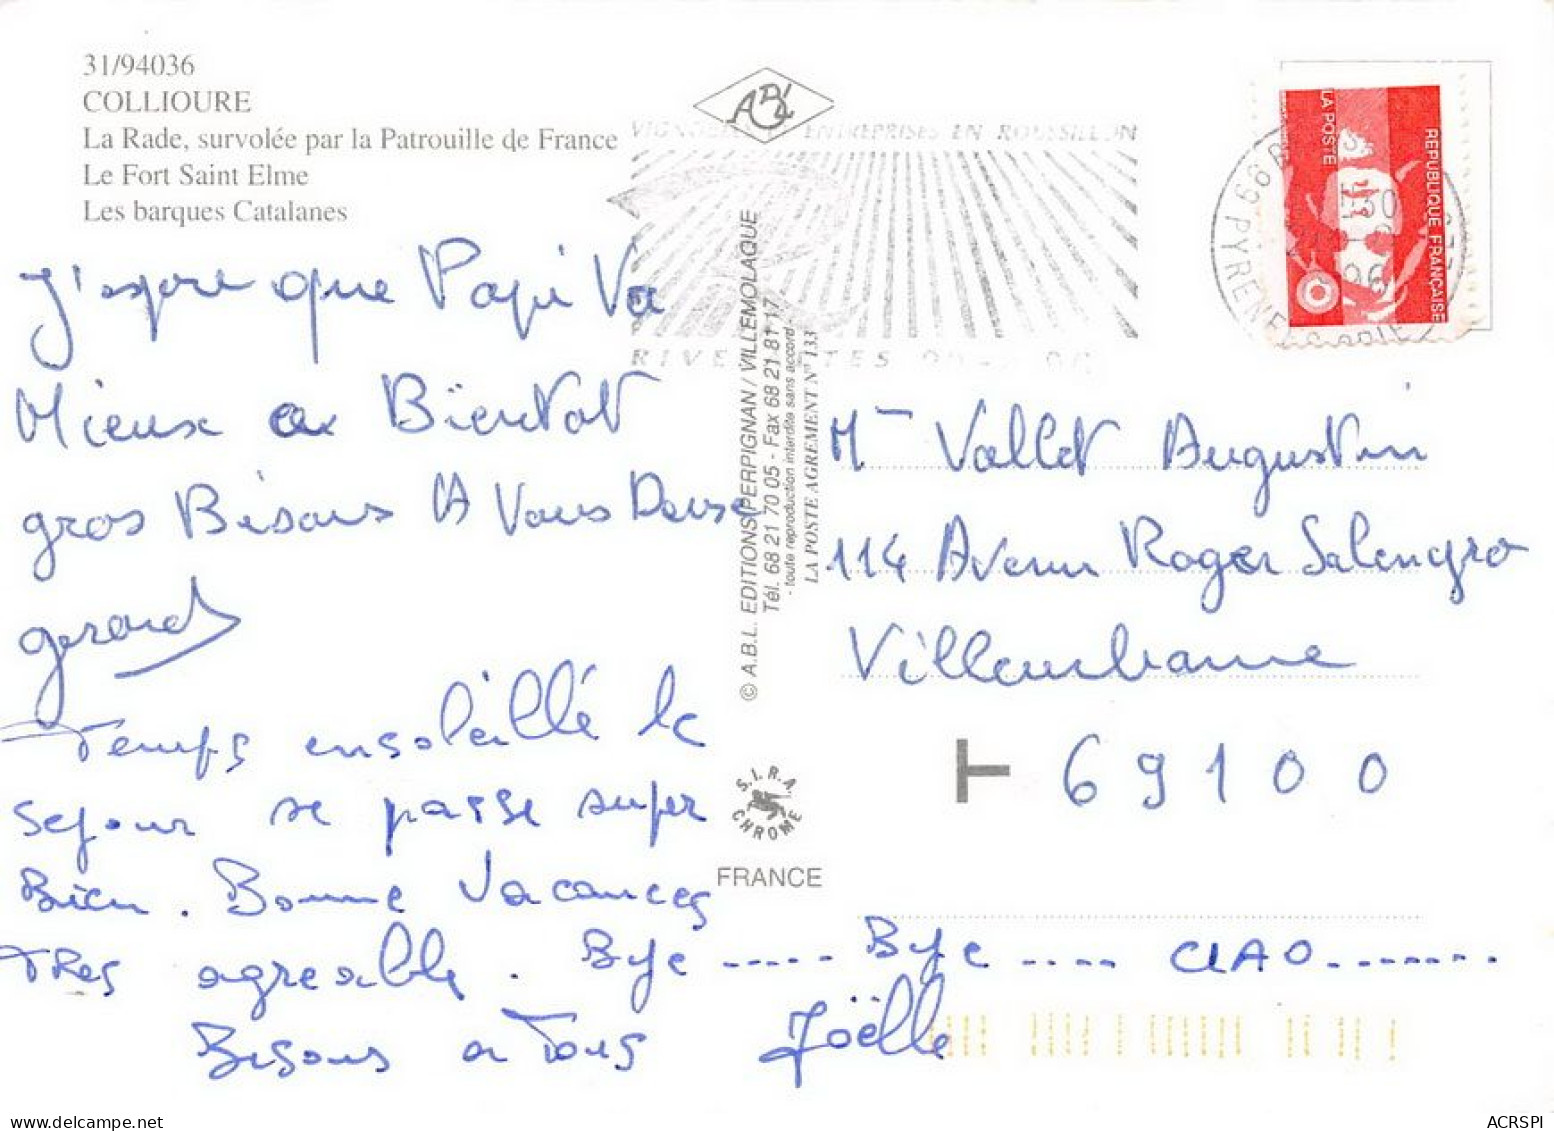 31/94036
COLLIOURE
La Rade, survolée par la Patrouille de France
Le Fort Saint Elme
Les barques Catalanes
ABL
ENTREPRISES EN ROUSSILLON
66
PYRENEES
96
LA POSTE
REPUBLIQUE FRANÇAISE
J'espere que Papi Va
Mieux a Bientot
gros Bisous A Vous Deuse
gerard
Temps ensoleillé le
sejour se passe super
Bien. Bonne Vacances
Tres agreable. Bye ..... Bye .... CIAO.......
Bisous a Tous Joëlle
© A.B.L. EDITIONS PERPIGNAN / VILLEMOLAQUE
Tél. 68 21 70 05 - Fax 68 21 81 17
- toute reproduction interdite sans accord -
LA POSTE AGREMENT N° 133
S.I.R.A.
CHROME
FRANCE
Mme Vallet Augustin
114 Avenue Roger Salengro
Villeurbanne
T 69100
ACRSPI